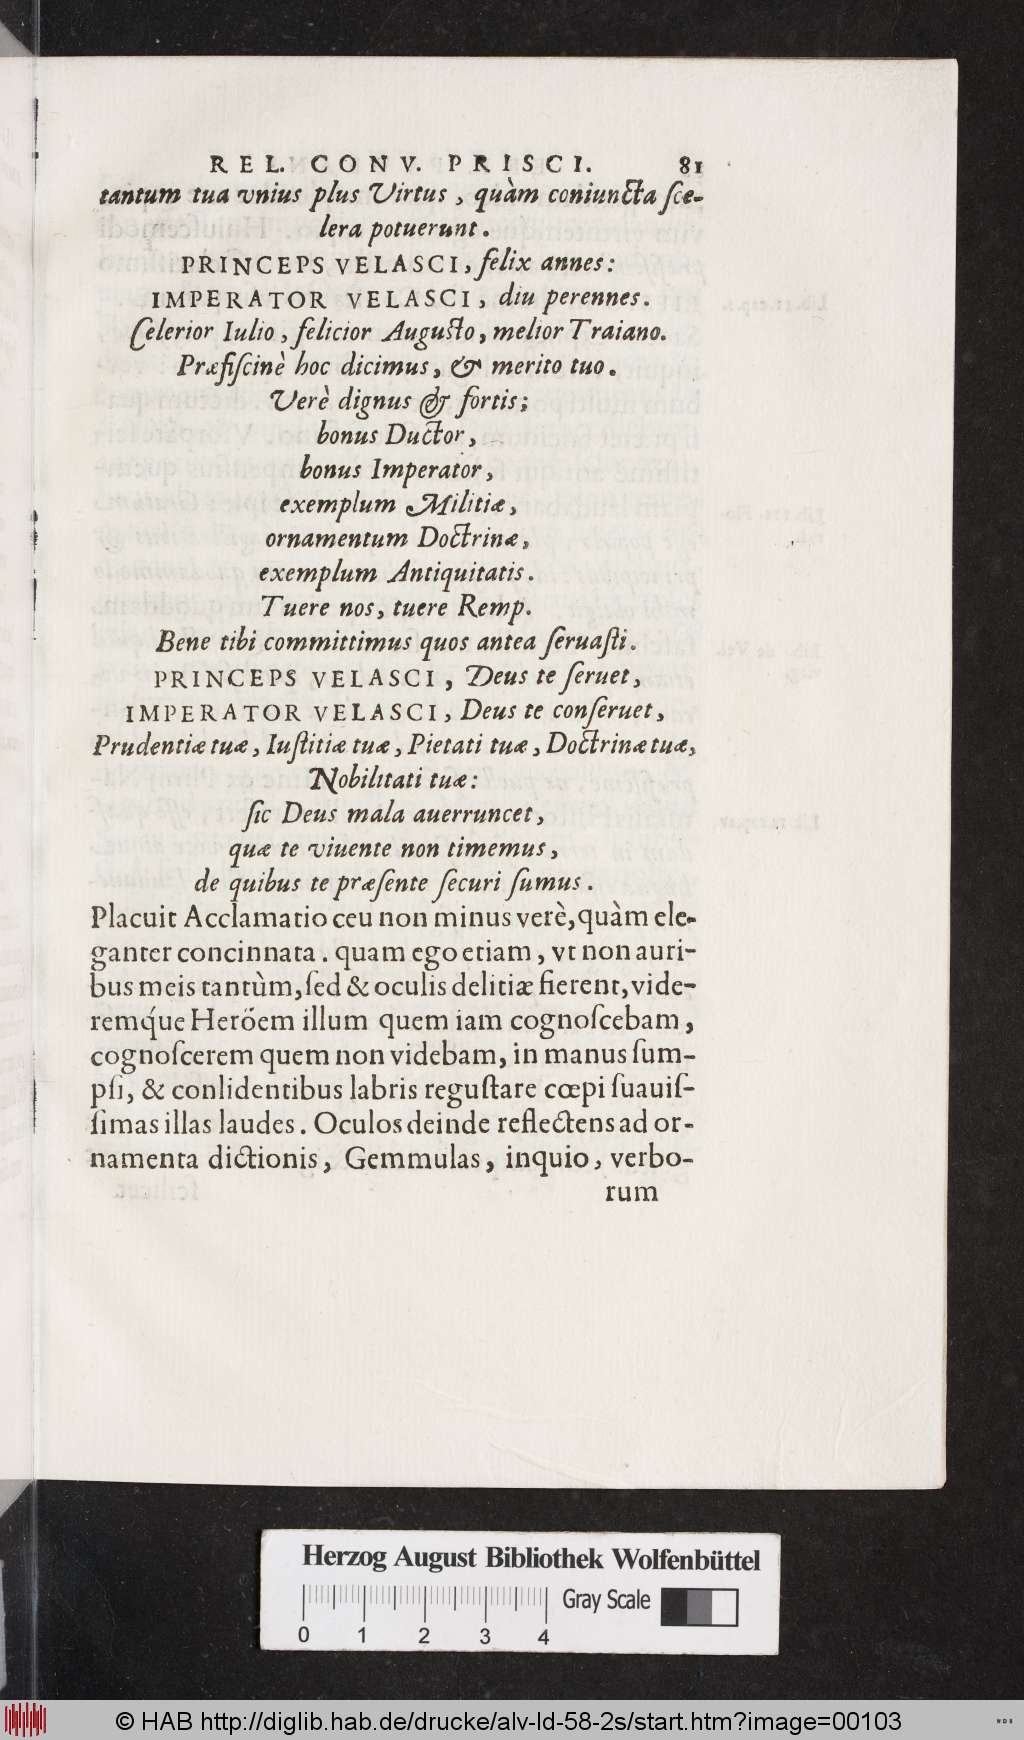 REL. CONV. PRISCI. 81
tantum tua vnius plus Virtus, quàm coniuncta ſce-
lera potuerunt.
PRINCEPS VELASCI, felix annes:
IMPERATOR VELASCI, diu perennes.
Celerior Iulio, felicior Auguſto, melior Traiano.
Præfiſcinè hoc dicimus, & merito tuo.
Verè dignus & fortis;
bonus Ductor,
bonus Imperator,
exemplum Militiæ,
ornamentum Doctrinæ,
exemplum Antiquitatis.
Tuere nos, tuere Remp.
Bene tibi committimus quos antea ſeruaſti.
PRINCEPS VELASCI, Deus te ſeruet,
IMPERATOR VELASCI, Deus te conſeruet,
Prudentiæ tuæ, Iuſtitiæ tuæ, Pietati tuæ, Doctrinæ tuæ,
Nobilitati tuæ:
ſic Deus mala auerruncet,
quæ te viuente non timemus,
de quibus te præſente ſecuri ſumus.
Placuit Acclamatio ceu non minus verè, quàm ele-
ganter concinnata. quam ego etiam, vt non auri-
bus meis tantùm, ſed & oculis delitiæ fierent, vide-
remq́ue Heröem illum quem iam cognoſcebam,
cognoſcerem quem non videbam, in manus ſum-
pſi, & conlidentibus labris reguſtare cœpi ſuauiſ-
ſimas illas laudes. Oculos deinde reflectens ad or-
namenta dictionis, Gemmulas, inquio, verbo-
rum
Herzog August Bibliothek Wolfenbüttel
Gray Scale
0 1 2 3 4
© HAB http://diglib.hab.de/drucke/alv-ld-58-2s/start.htm?image=00103